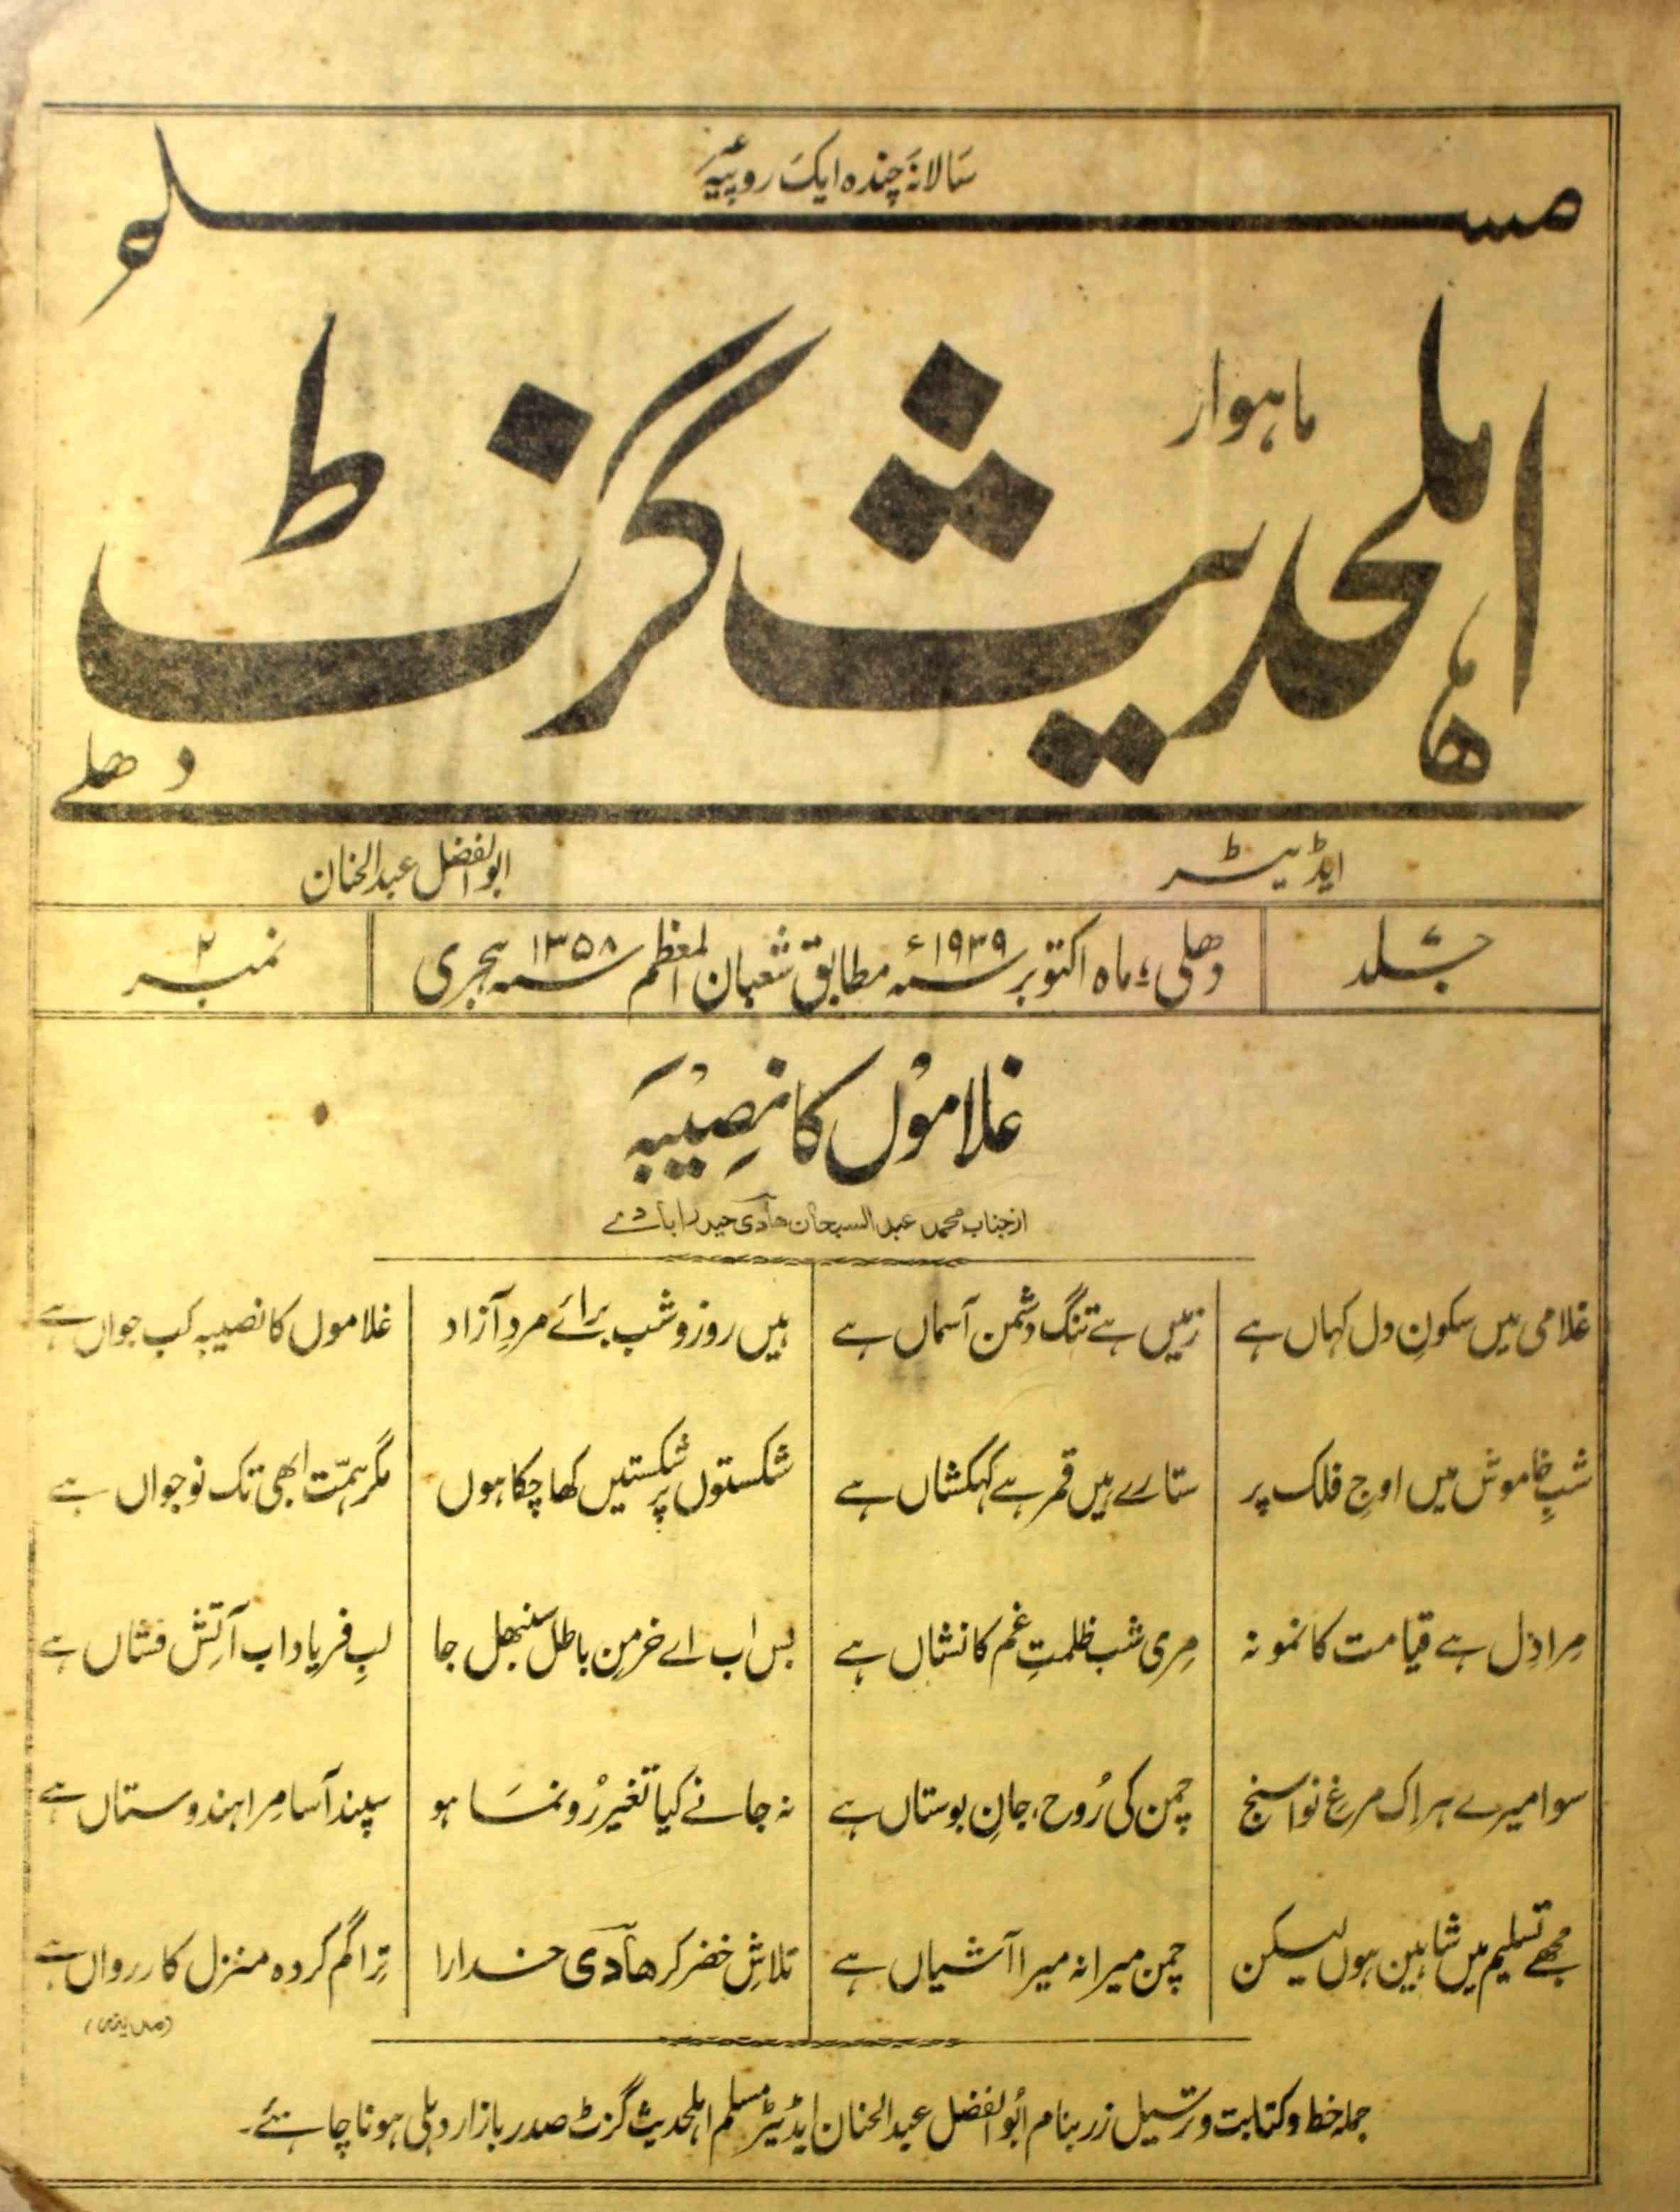 سالانہ چندہ ایک روپیہ
مسلم
ماہوار
اہلحدیث گزٹ
دھلی
ایڈیٹر
ابوالفضل عبدالحنان
جلد
دھلی، ماہ اکتوبر سنہ ۱۹۳۹ء مطابق شعبان المعظم سنہ ۱۳۵۸ ہجری
نمبر ۲
غلاموں کا نصِیبہ
از جناب محمد عبدالسبحان ھادی حیدرآبادی
غلامی میں سکونِ دل کہاں ہے
زمیں ہے تنگ دشمن آسماں ہے
شبِ خاموش میں اوجِ فلک پر
ستارے ہیں قمر ہے کہکشاں ہے
مِرا دِل ہے قیامت کا نمونہ
مِری شب ظلمتِ غم کا نشاں ہے
سوا میرے ہر اک مرغِ نوا سنج
چمن کی رُوح، جانِ بوستاں ہے
مجھے تسلیم میں شاہین ہوں لیکن
چمن میرا نہ میرا آشیاں ہے
ہیں روز و شب برائے مردِ آزاد
غلاموں کا نصیبہ کب جواں ہے
شکستوں پر شکستیں کھا چکا ہوں
مگر ہمّت ابھی تک نوجواں ہے
بس اب اے خرمنِ باطل سنبھل جا
لبِ فریاد اب آتِش فشاں ہے
نہ جانے کیا تغیر رُونما ہو
سپند آسا مِرا ہندوستاں ہے
تلاشِ خضر کر ھادی خدارا
تِرا گم کردہ منزل کارواں ہے
(مدینہ)
جملہ خط و کتابت و ترسیل زر بنام ابُوالفضل عبدالحنان ایڈیٹر مسلم اہلحدیث گزٹ صدر بازار دہلی ہونا چاہئے۔